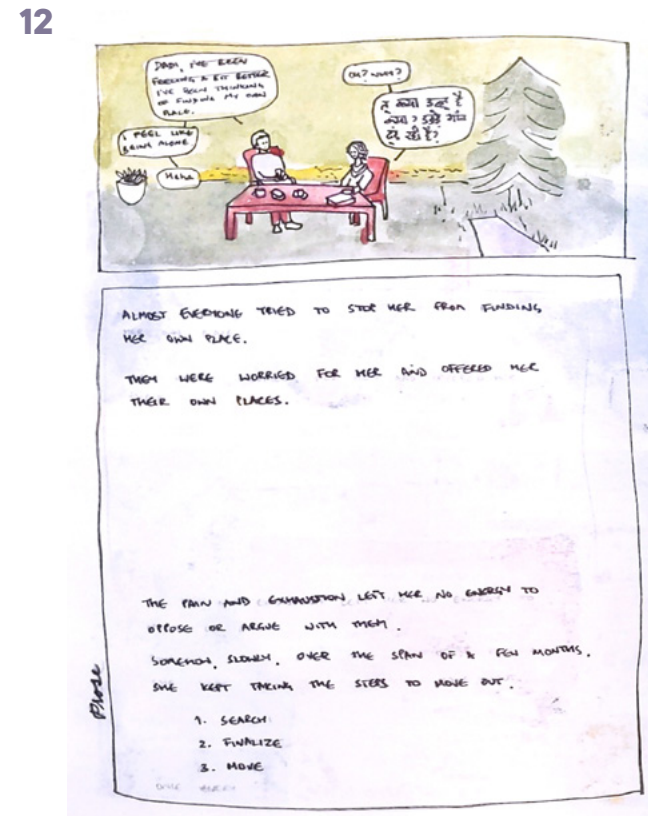 12
DADI, I'VE BEEN
FEELING A BIT BETTER
I'VE BEEN THINKING
OF FINDING MY OWN
PLACE.
OH? WHY?
I FEEL LIKE
BEING ALONE
Hehe
ALMOST EVERYONE TRIED TO STOP HER FROM FINDING
HER OWN PLACE.
THEY WERE WORRIED FOR HER AND OFFERED HER
THEIR OWN PLACES.
THE PAIN AND EXHAUSTION LEFT HER NO ENERGY TO
OPPOSE OR ARGUE WITH THEM.
SOMEHOW, SLOWLY, OVER THE SPAN OF A FEW MONTHS,
SHE KEPT TAKING THE STEPS TO MOVE OUT.
1. SEARCH
2. FINALIZE
3. MOVE
Prose